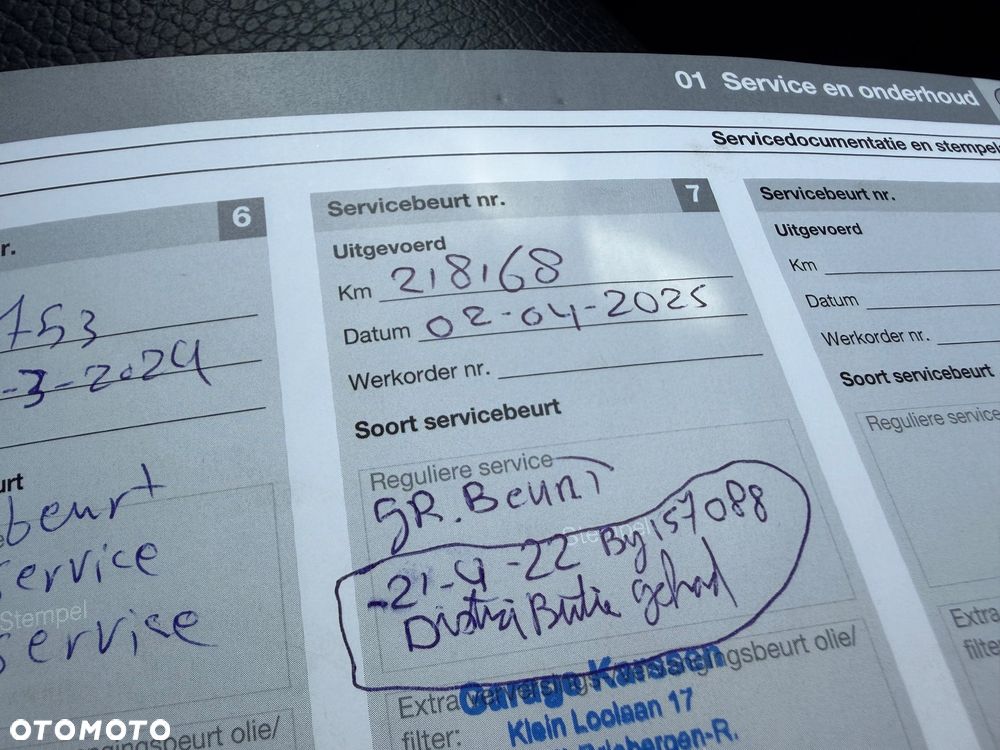 01 Service en onderhoud
Servicedocumentatie en stempels
r.
6
753
-3-2024
urt
beurt
service
Stempel
service
gingsbeurt olie/
Servicebeurt nr.
7
Uitgevoerd
Km 218168
Datum 02-04-2025
Werkorder nr.
Soort servicebeurt
Reguliere service
GR. Beurt
Stempel
-21-4-22 By 157088
Distri Butie gehad
Garage Karssen
Extra olie/
filter:
Klein Loolaan 17
Servicebeurt nr.
Uitgevoerd
Km
Datum
Werkorder nr.
Soort servicebeurt
Reguliere service
Extra
filter
OTOMOTO